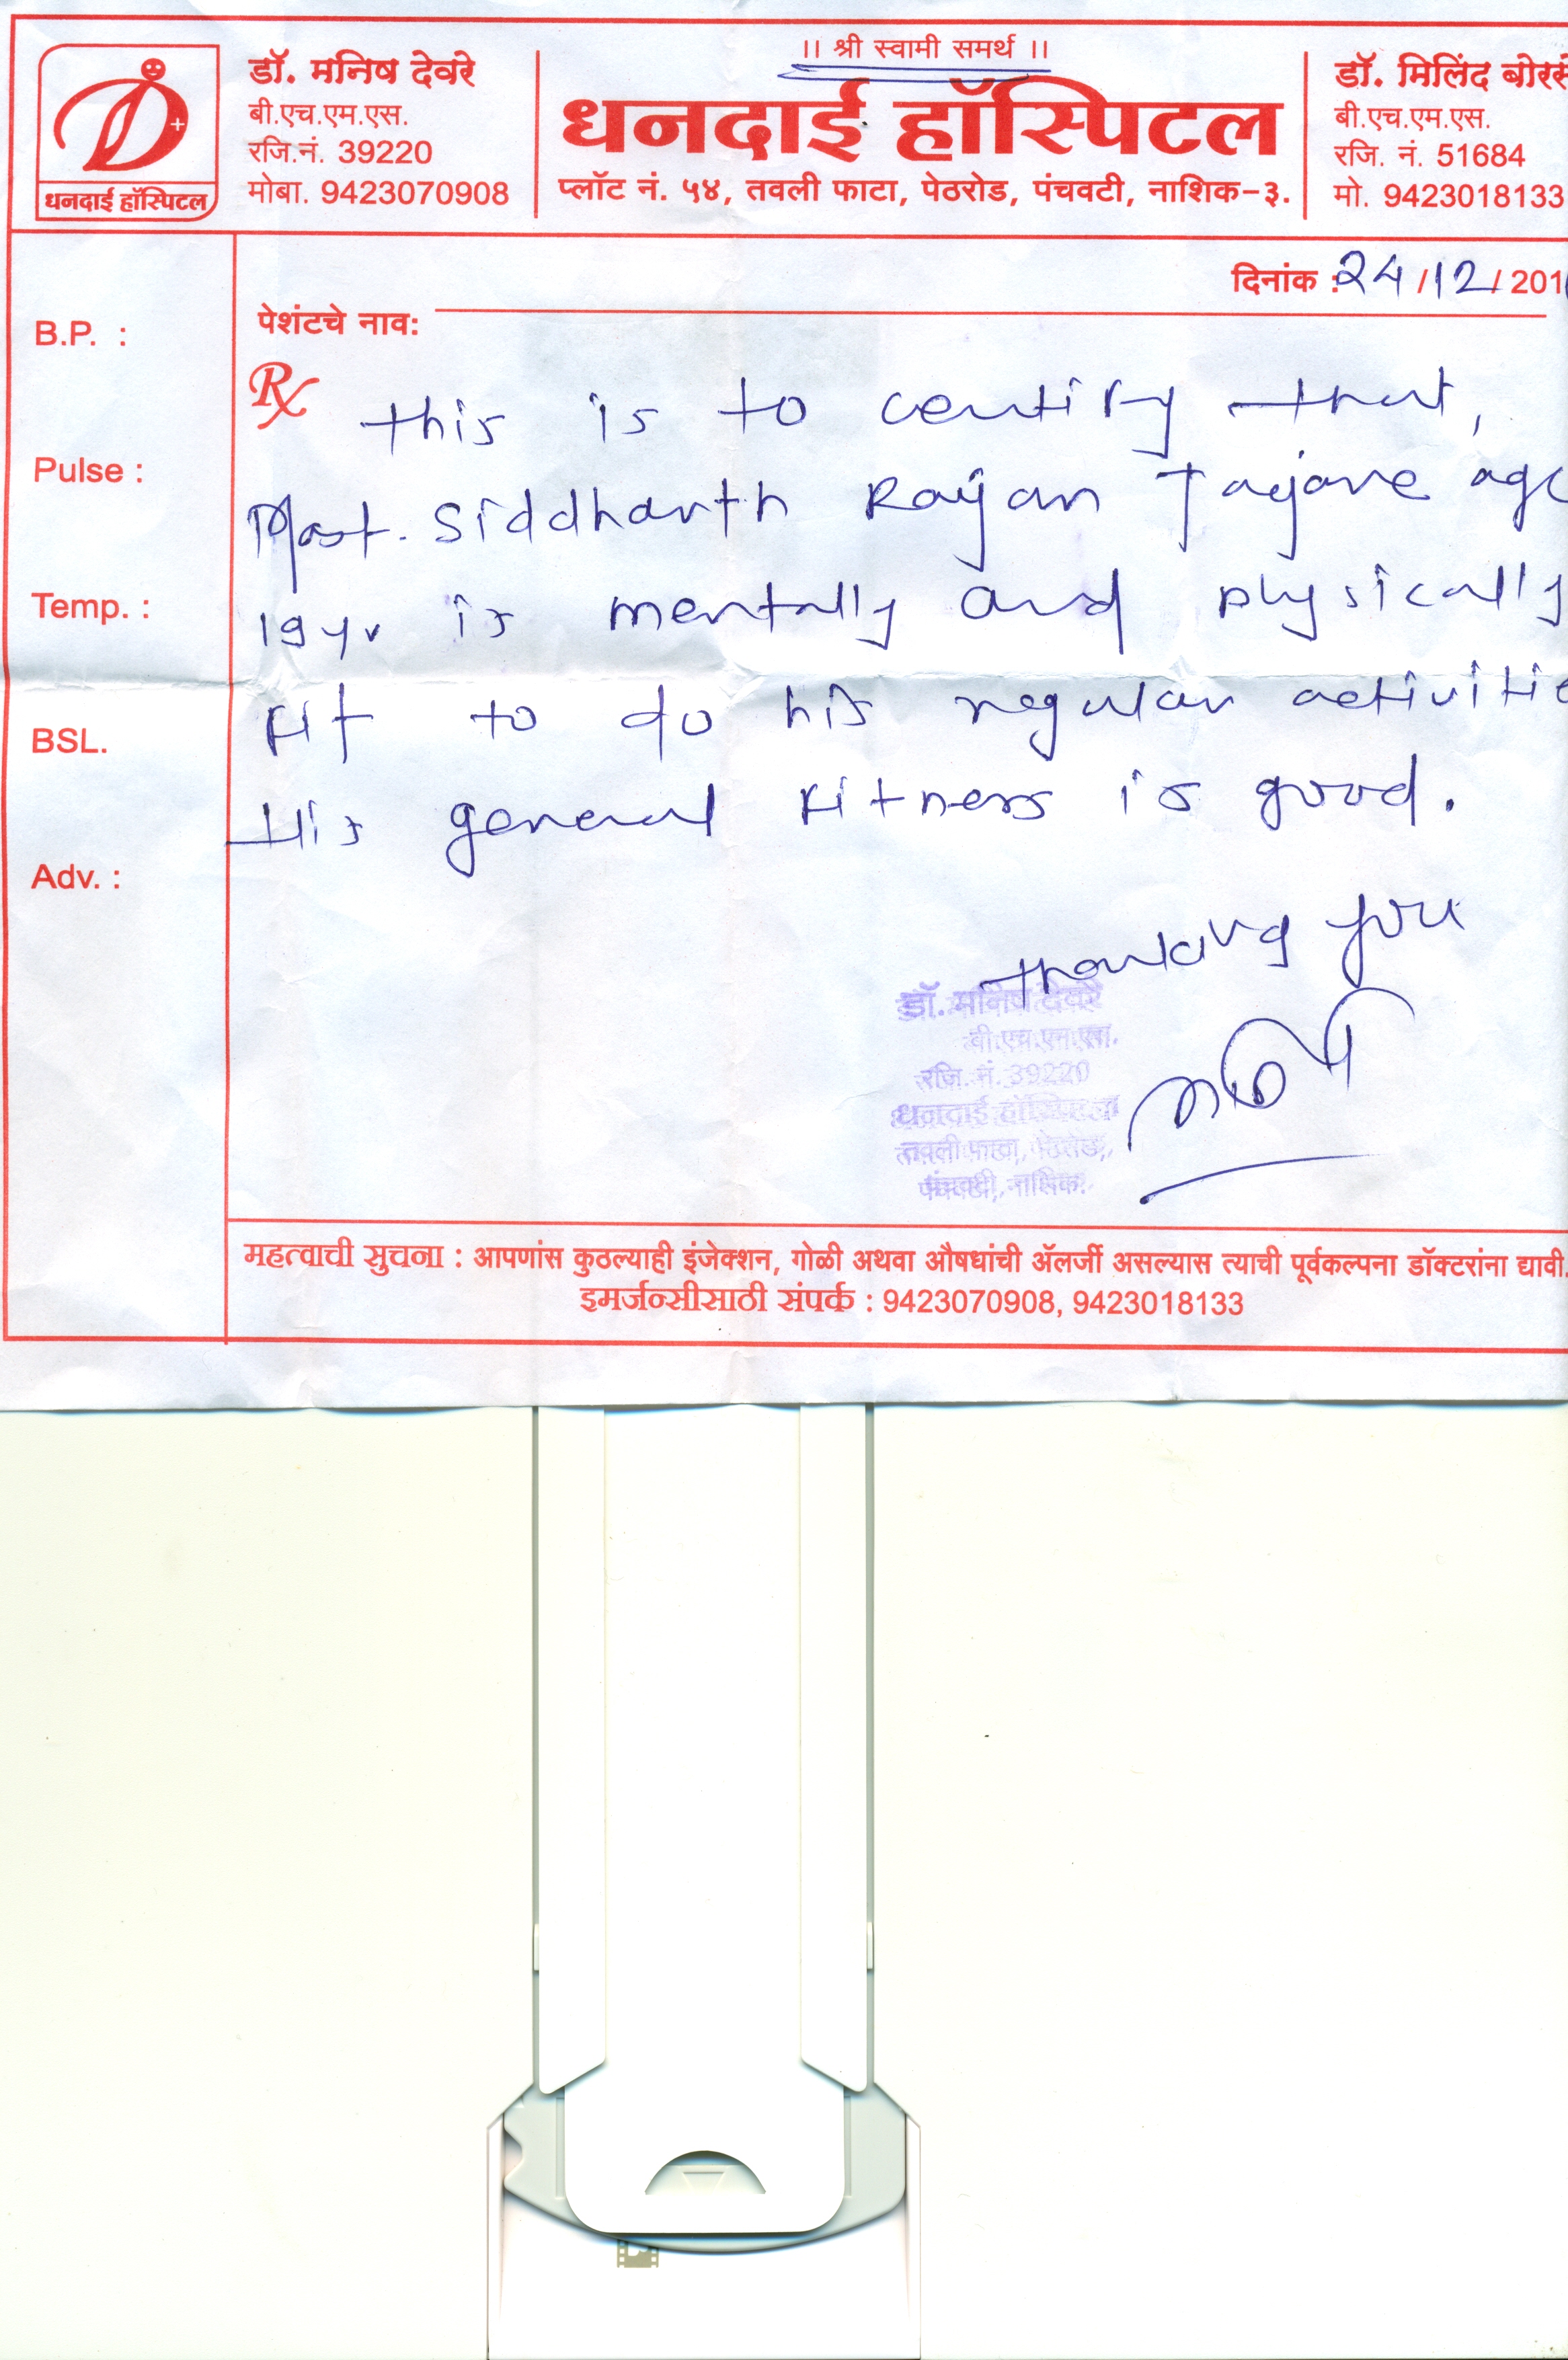 डॉ. मनिष देवरे
बी.एच.एम.एस.
रजि.नं. 39220
मोबा. 9423070908
धनदाई हॉस्पिटल
।। श्री स्वामी समर्थ ।।
धनदाई हॉस्पिटल
प्लॉट नं. ५४, तवली फाटा, पेठरोड, पंचवटी, नाशिक-३.
डॉ. मिलिंद बोरसे
बी.एच.एम.एस.
रजि. नं. 51684
मो. 9423018133
दिनांक : 24/12/201
पेशंटचे नाव:
B.P. :
Pulse :
Temp. :
BSL.
Adv. :
Rx This is to certify that,
Mast. Siddharth Rajan Tajane age
19 yr is mentally and physically
fit to do his regular activitie
His general fitness is good.
Thanking you
डॉ. मनिष देवरे
बी.एच.एम.एस.
रजि. नं. 39220
धनदाई हॉस्पिटल
तवली फाटा, पेठरोड,
पंचवटी, नाशिक.
महत्वाची सुचना : आपणांस कुठल्याही इंजेक्शन, गोळी अथवा औषधांची ॲलर्जी असल्यास त्याची पूर्वकल्पना डॉक्टरांना द्यावी.
इमर्जन्सीसाठी संपर्क : 9423070908, 9423018133